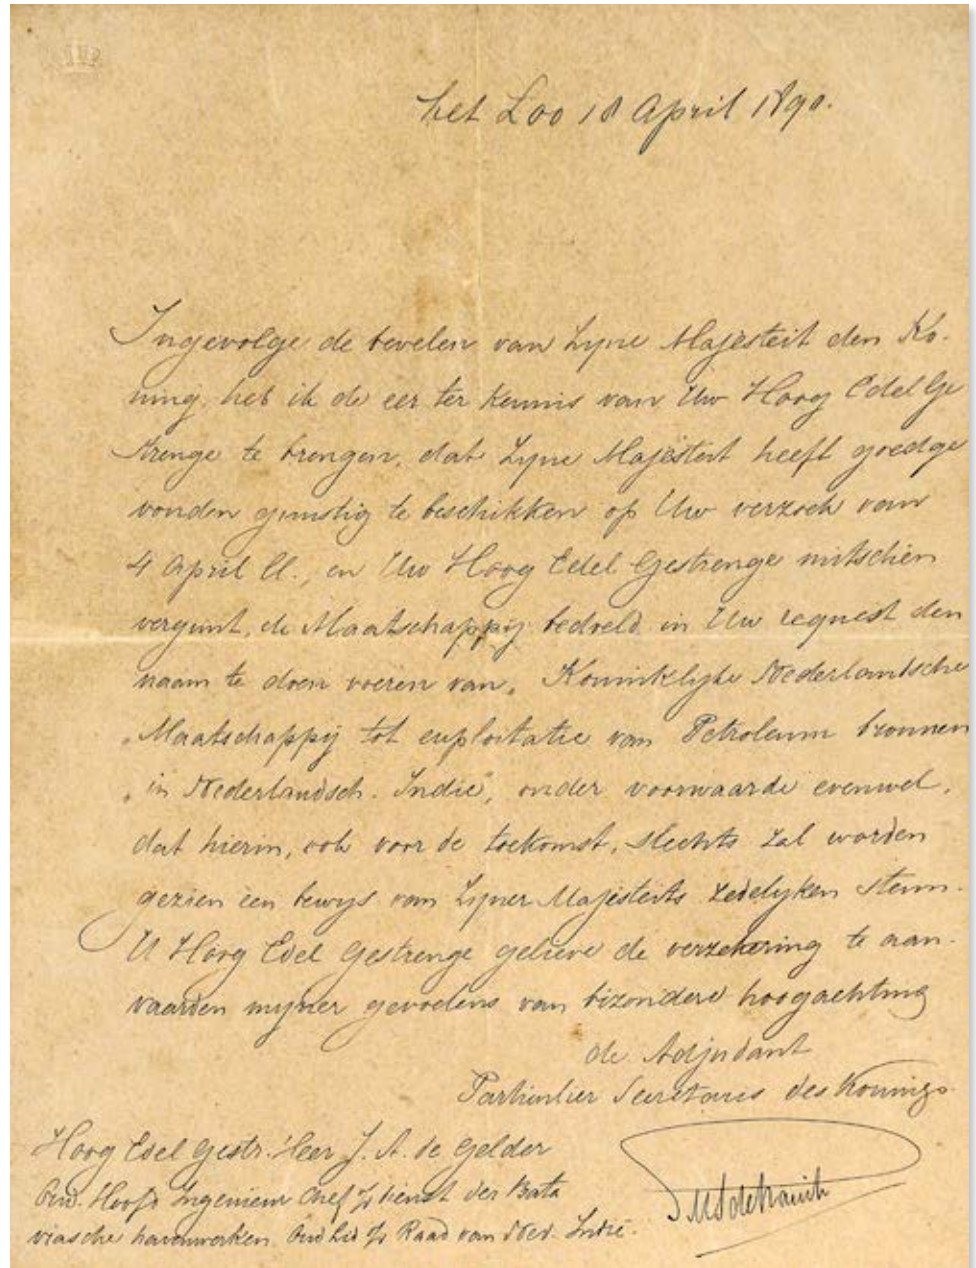 het Loo 18 April 1890.
Ingevolge de bevelen van Zyne Majesteit den Ko-
ning, heb ik de eer ter kennis van Uw Hoog Edel Ge
strenge te brengen, dat Zyne Majesteit heeft goedge
vonden gunstig te beschikken op Uw verzoek van
4 April ll., en Uw Hoog Edel Gestrenge mitsdien
vergunt, de Maatschappij bedoeld in Uw request den
naam te doen voeren van „Koninklijke Nederlandsche
„Maatschappij tot exploitatie van Petroleum bronnen
„in Nederlandsch-Indië", onder voorwaarde evenwel,
dat hierin, ook voor de toekomst, slechts zal worden
gezien een bewijs van Zyner Majesteits zedelyken steun.
U Hoog Edel Gestrenge gelieve de verzekering te aan-
vaarden mijner gevoelens van bizondere hoogachting
de Adjudant
Particulier Secretaris des Konings
Hoog Edel Gestr. Heer J. A. de Gelder
Oud. Hoofd Ingenieur Chef dienst der Bata
viasche havenwerken. Oud Lid Raad van Ned. Indië.